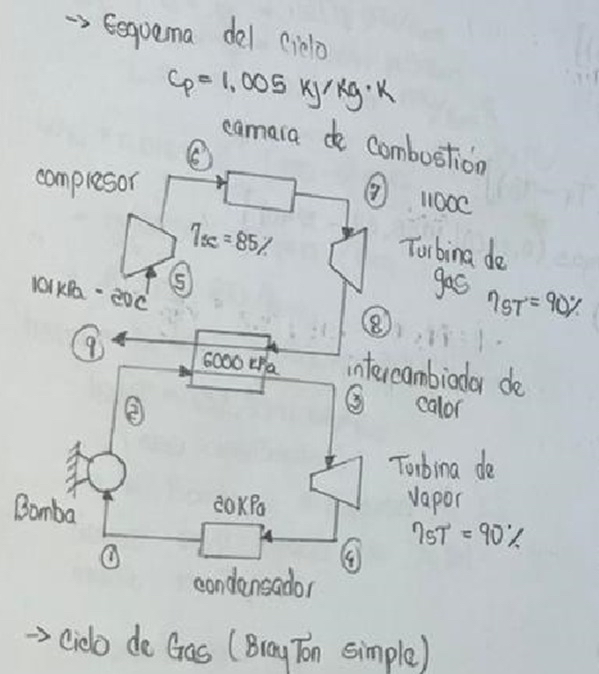 -> Esquema del Ciclo
Cp = 1,005 kJ/kg·K
camara de combustión
6
7
compresor
1100C
ηsc = 85%
Turbina de
gas
ηST = 90%
101kPa - 20C
5
8
9
6000 kPa
intercambiador de
calor
2
3
Turbina de
vapor
ηST = 90%
Bomba
20KPa
1
4
condensador
-> Ciclo de Gas (BrayTon simple)